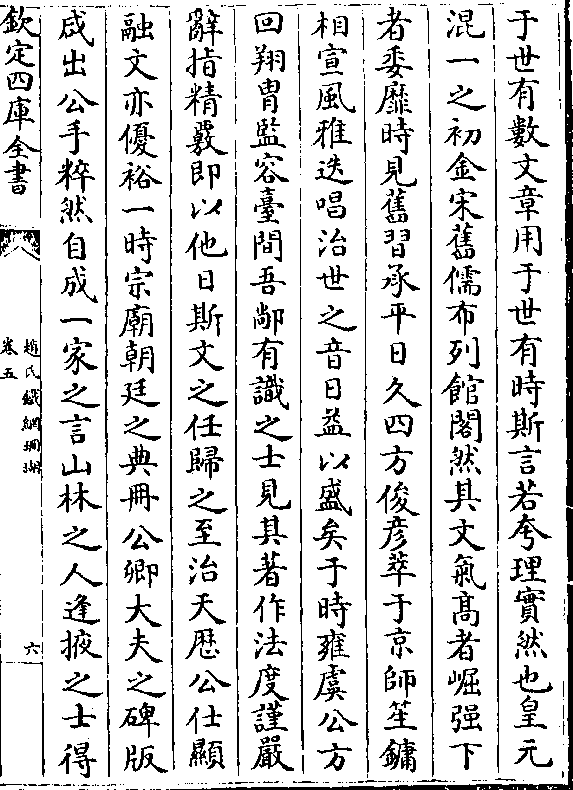 于世有數文章用于世有時斯言若夸理實然也皇元
混一之初金宋舊儒布列館閣然其文氣高者崛强下
者委靡時見舊習承平日久四方俊彦萃于京師笙鏞
相宣風雅迭唱治世之音日益以盛矣于時雍虞公方
回翔胄監容臺間吾鄰有識之士見其著作法度謹嚴
辭指精覈即以他日斯文之任歸之至治天厯公仕顯
融文亦優裕一時宗廟朝廷之典冊公卿大夫之碑版
咸出公手粹然自成一家之言山林之人逢掖之士得
欽定四庫全書
趙氏鐵網珊瑚
卷五
六